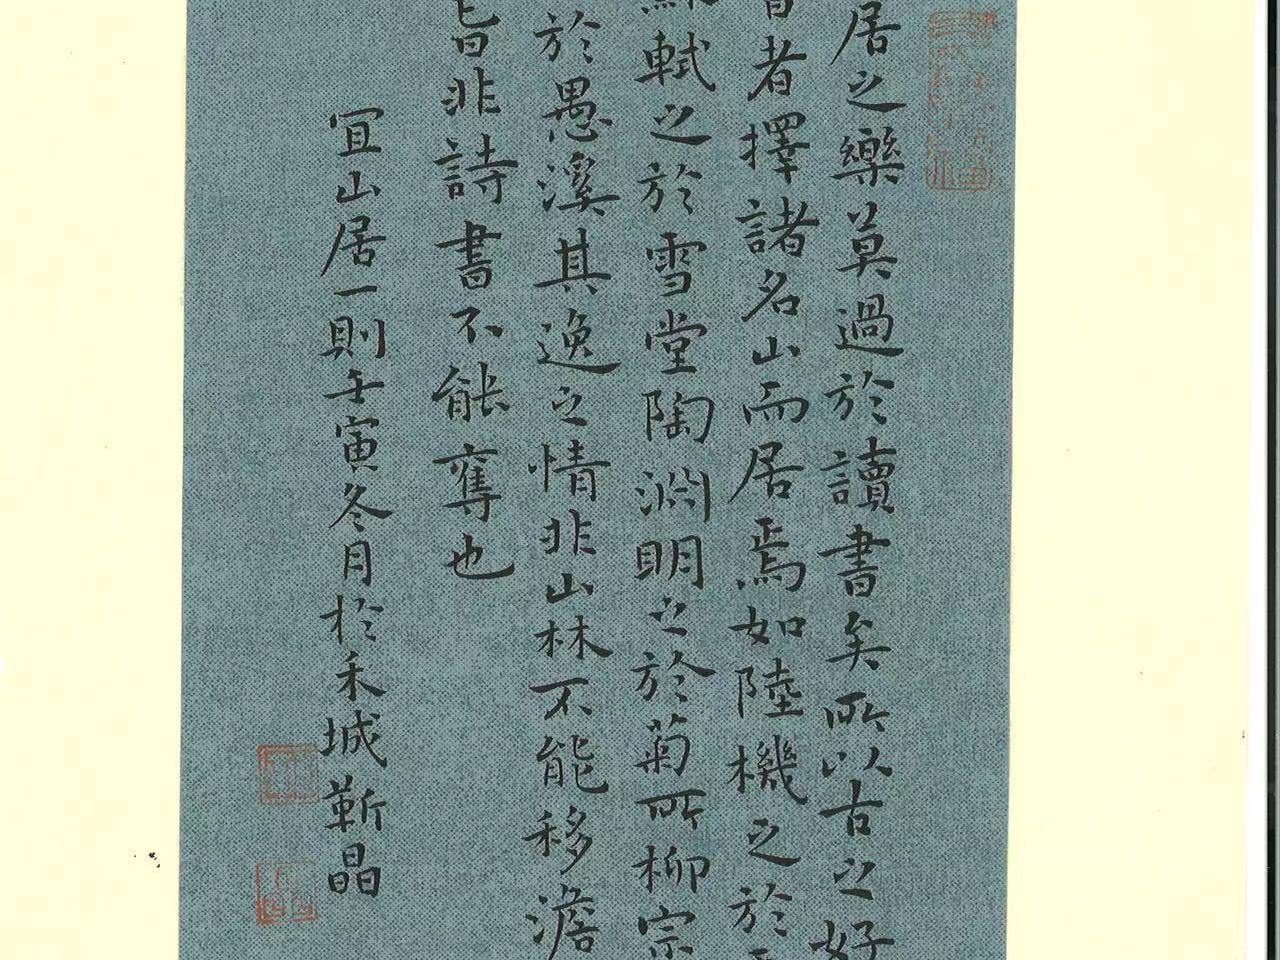 居之樂莫過於讀書矣所以古之好
者擇諸名山而居焉如陸機之於
軾之於雪堂陶淵明之於菊所柳宗
於愚溪其逸之情非山林不能移澹
旨非詩書不能奪也
宜山居一則壬寅冬月於禾城靳晶